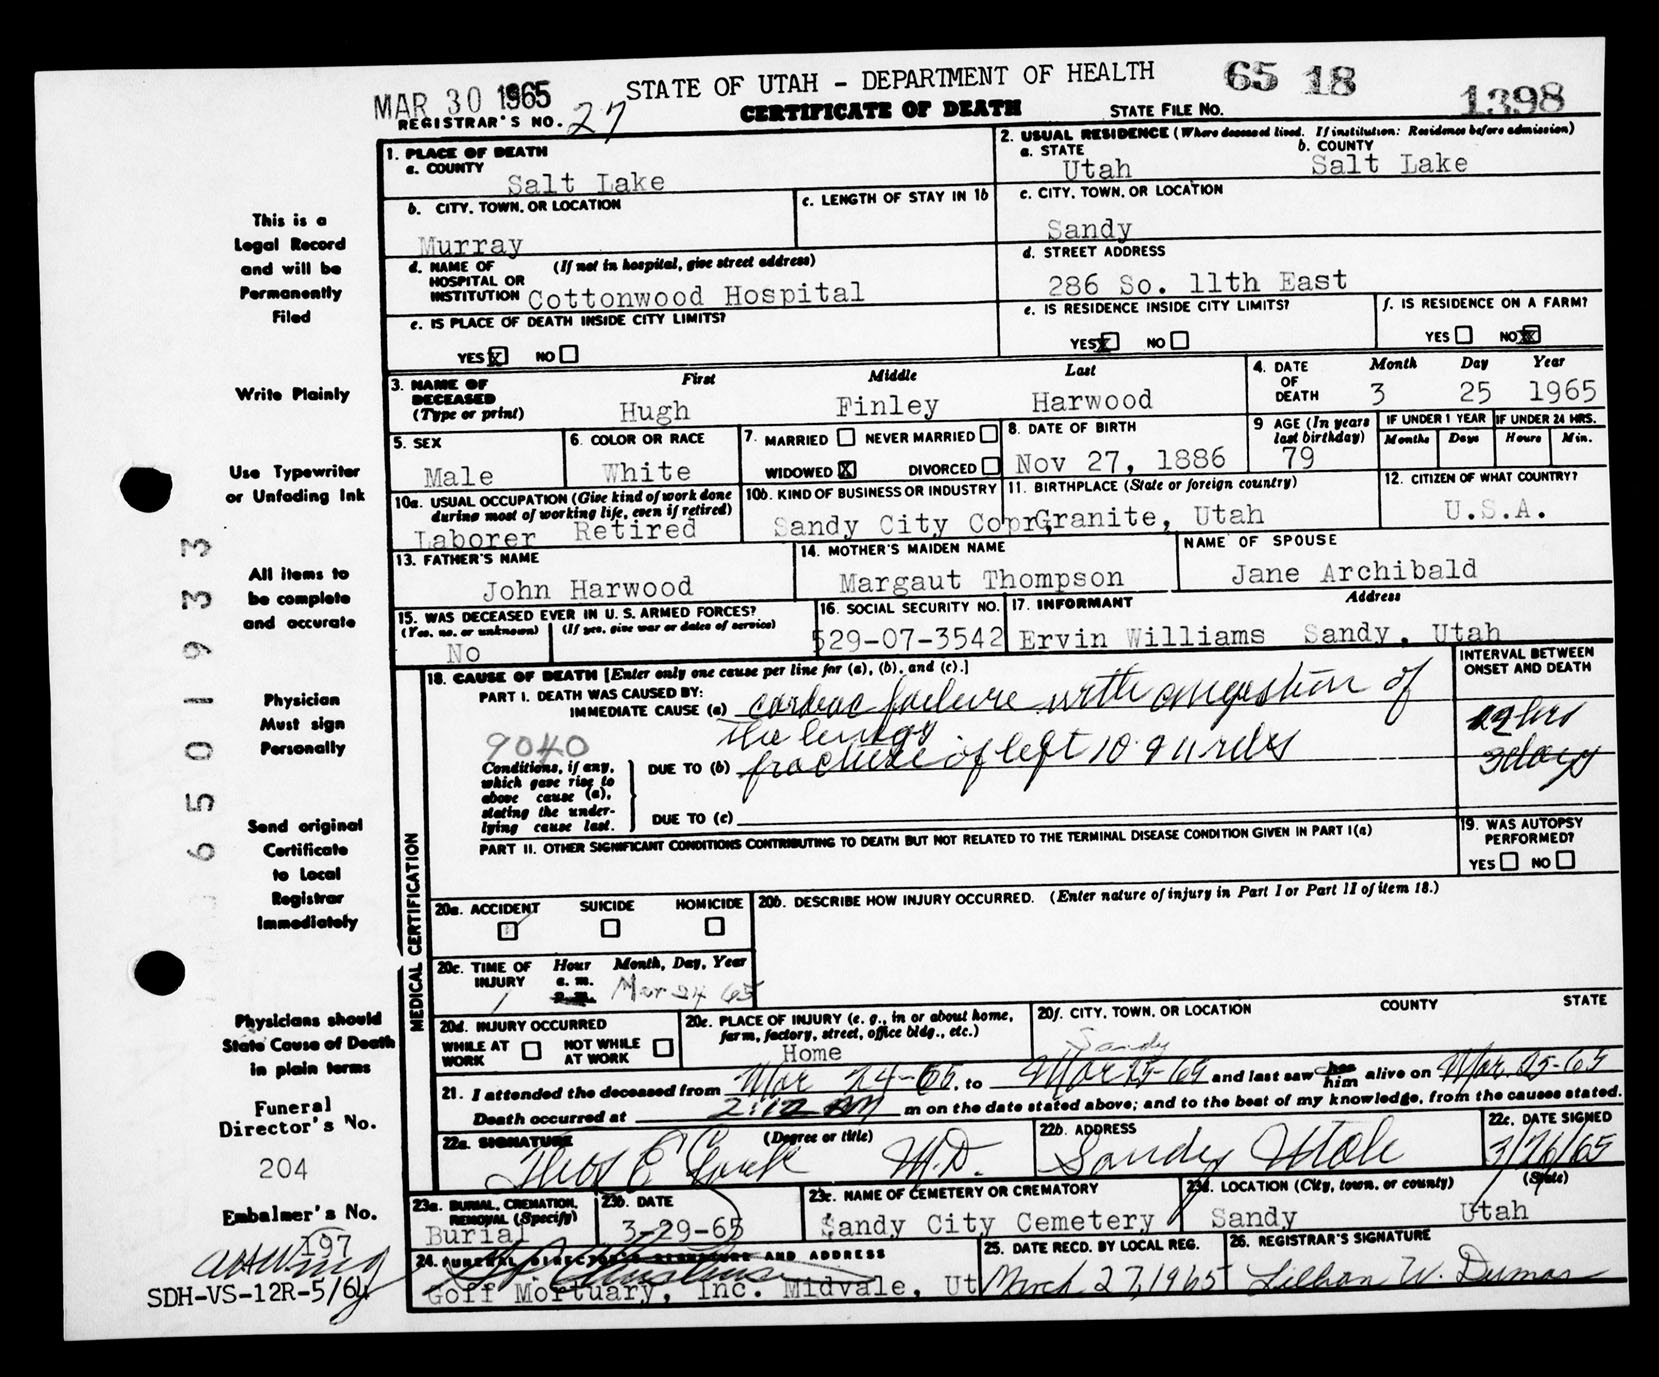 STATE OF UTAH - DEPARTMENT OF HEALTH
65 18
1398
MAR 30 1965
REGISTRAR'S NO. 27
CERTIFICATE OF DEATH
STATE FILE NO.
1. PLACE OF DEATH
a. COUNTY
Salt Lake
2. USUAL RESIDENCE (Where deceased lived. If institution: Residence before admission)
a. STATE
Utah
b. COUNTY
Salt Lake
b. CITY, TOWN, OR LOCATION
Murray
c. LENGTH OF STAY IN 1b
c. CITY, TOWN, OR LOCATION
Sandy
d. NAME OF (If not in hospital, give street address)
HOSPITAL OR
INSTITUTION Cottonwood Hospital
d. STREET ADDRESS
286 So. 11th East
e. IS PLACE OF DEATH INSIDE CITY LIMITS?
YES X NO
e. IS RESIDENCE INSIDE CITY LIMITS?
YES X NO
f. IS RESIDENCE ON A FARM?
YES NO X
3. NAME OF
DECEASED
(Type or print)
First Middle Last
Hugh Finley Harwood
4. DATE
OF
DEATH
Month Day Year
3 25 1965
5. SEX
Male
6. COLOR OR RACE
White
7. MARRIED NEVER MARRIED
WIDOWED X DIVORCED
8. DATE OF BIRTH
Nov 27, 1886
9 AGE (In years
last birthday)
79
IF UNDER 1 YEAR
Months Days
IF UNDER 24 HRS.
Hours Min.
10a. USUAL OCCUPATION (Give kind of work done
during most of working life, even if retired)
Laborer Retired
10b. KIND OF BUSINESS OR INDUSTRY
Sandy City Copr
11. BIRTHPLACE (State or foreign country)
Granite, Utah
12. CITIZEN OF WHAT COUNTRY?
U.S.A.
13. FATHER'S NAME
John Harwood
14. MOTHER'S MAIDEN NAME
Margaut Thompson
NAME OF SPOUSE
Jane Archibald
15. WAS DECEASED EVER IN U. S. ARMED FORCES?
(Yes, no, or unknown) (If yes, give war or dates of service)
No
16. SOCIAL SECURITY NO.
529-07-3542
17. INFORMANT Address
Ervin Williams Sandy, Utah
18. CAUSE OF DEATH [Enter only one cause per line for (a), (b), and (c).]
INTERVAL BETWEEN
ONSET AND DEATH
PART I. DEATH WAS CAUSED BY:
IMMEDIATE CAUSE (a) cardiac failure with congestion of
the lungs
9040
Conditions, if any,
which gave rise to
above cause (a),
stating the under-
lying cause last.
DUE TO (b) fracture of left 10 & 11 ribs
3 days
DUE TO (c)
PART II. OTHER SIGNIFICANT CONDITIONS CONTRIBUTING TO DEATH BUT NOT RELATED TO THE TERMINAL DISEASE CONDITION GIVEN IN PART I(a)
19. WAS AUTOPSY
PERFORMED?
YES NO
MEDICAL CERTIFICATION
20a. ACCIDENT SUICIDE HOMICIDE
20b. DESCRIBE HOW INJURY OCCURRED. (Enter nature of injury in Part I or Part II of item 18.)
20c. TIME OF
INJURY
Hour Month, Day, Year
a. m.
p. m.
1 Mar 24 65
20d. INJURY OCCURRED
WHILE AT
WORK
NOT WHILE
AT WORK
20e. PLACE OF INJURY (e. g., in or about home,
farm, factory, street, office bldg., etc.)
Home
20f. CITY, TOWN, OR LOCATION COUNTY STATE
Sandy
21. I attended the deceased from Mar 24-65, to Mar 25-65 and last saw her
him alive on Mar. 25-65
Death occurred at 2:12 AM m on the date stated above; and to the best of my knowledge, from the causes stated.
22a. SIGNATURE (Degree or title)
M.D.
22b. ADDRESS
Sandy Utah
22c. DATE SIGNED
3/26/65
23a. BURIAL, CREMATION,
REMOVAL (Specify)
Burial
23b. DATE
3-29-65
23c. NAME OF CEMETERY OR CREMATORY
Sandy City Cemetery
23d. LOCATION (City, town, or county) (State)
Sandy Utah
24. FUNERAL DIRECTOR'S SIGNATURE AND ADDRESS
Goff Mortuary, Inc. Midvale, Ut
25. DATE RECD. BY LOCAL REG.
March 27, 1965
26. REGISTRAR'S SIGNATURE
Lillian W.
This is a
Legal Record
and will be
Permanently
Filed
Write Plainly
Use Typewriter
or Unfading Ink
All items to
be complete
and accurate
Physician
Must sign
Personally
Send original
Certificate
to Local
Registrar
Immediately
Physicians should
State Cause of Death
in plain terms
Funeral
Director's No.
204
Embalmer's No.
197
SDH-VS-12R-5/64
6501933